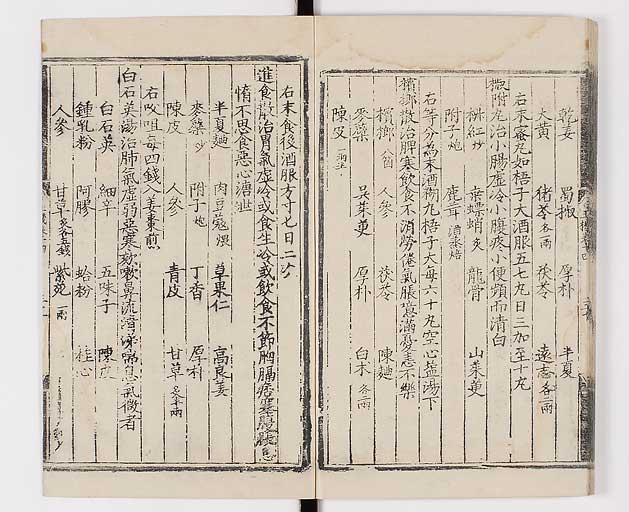 乾姜 蜀椒 厚朴 半夏
大黃 猪苓各二兩 茯苓 遠志各一兩
右末蜜丸如梧子大酒服五七丸日三加至十丸
椒附丸治小腸虛冷小腹疼小便頻而清白
椒紅炒 桑螵蛸炙 龍骨 山茱萸
附子炮 鹿茸酒蒸焙
右等分為末酒糊丸梧子大每六十丸空心盐湯下
檳榔散治脾寒飲食不消勞倦氣脹噫滿憂恚不樂
檳榔 人參 茯苓 陳麯
麥蘗 吳茱萸 厚朴 白朮各二兩
陳皮一兩五
右末食後酒服方寸七日二
進食散治胃氣虛冷或食生冷或飲食不節胸膈痞塞
惰不思食惡心溏泄
半夏麯 肉豆蔻煨 草果仁 高良姜
麥蘗炒 附子炮 丁香 厚朴
陳皮 人參 青皮 甘草
右㕮咀每四錢入姜棗煎
白石英湯治肺氣虛弱惡寒欬嗽鼻流清涕喘息氣微者
白石英 細辛 五味子 陳皮
鍾乳粉 阿膠 蛤粉 桂心
人參 甘草各五錢 紫菀一兩